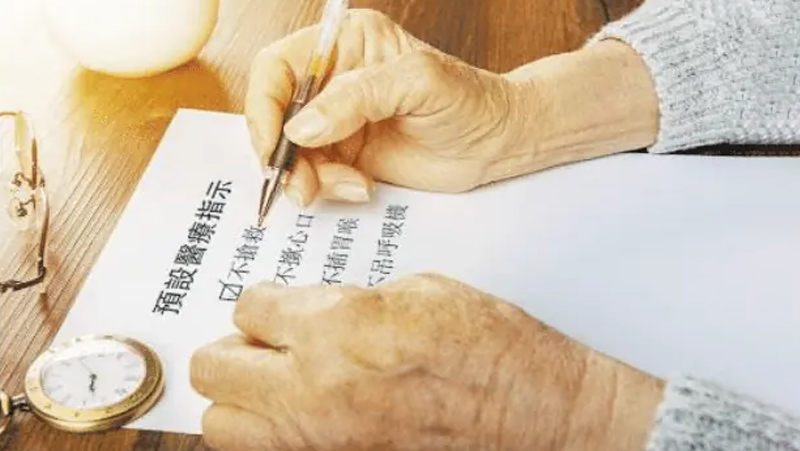 預設醫療指示
☑不搶救
不撳心口
不插胃喉
不吊呼吸機